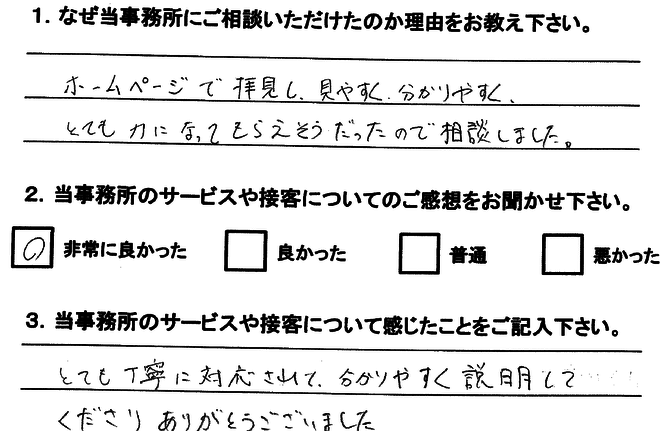 1. なぜ当事務所にご相談いただけたのか理由をお教え下さい。
ホームページで拝見し、見やすく、分かりやすく、
とても力になってもらえそうだったので相談しました。
2. 当事務所のサービスや接客についてのご感想をお聞かせ下さい。
○ 非常に良かった 良かった 普通 悪かった
3. 当事務所のサービスや接客について感じたことをご記入下さい。
とても丁寧に対応されて、分かりやすく説明して
くださりありがとうございました